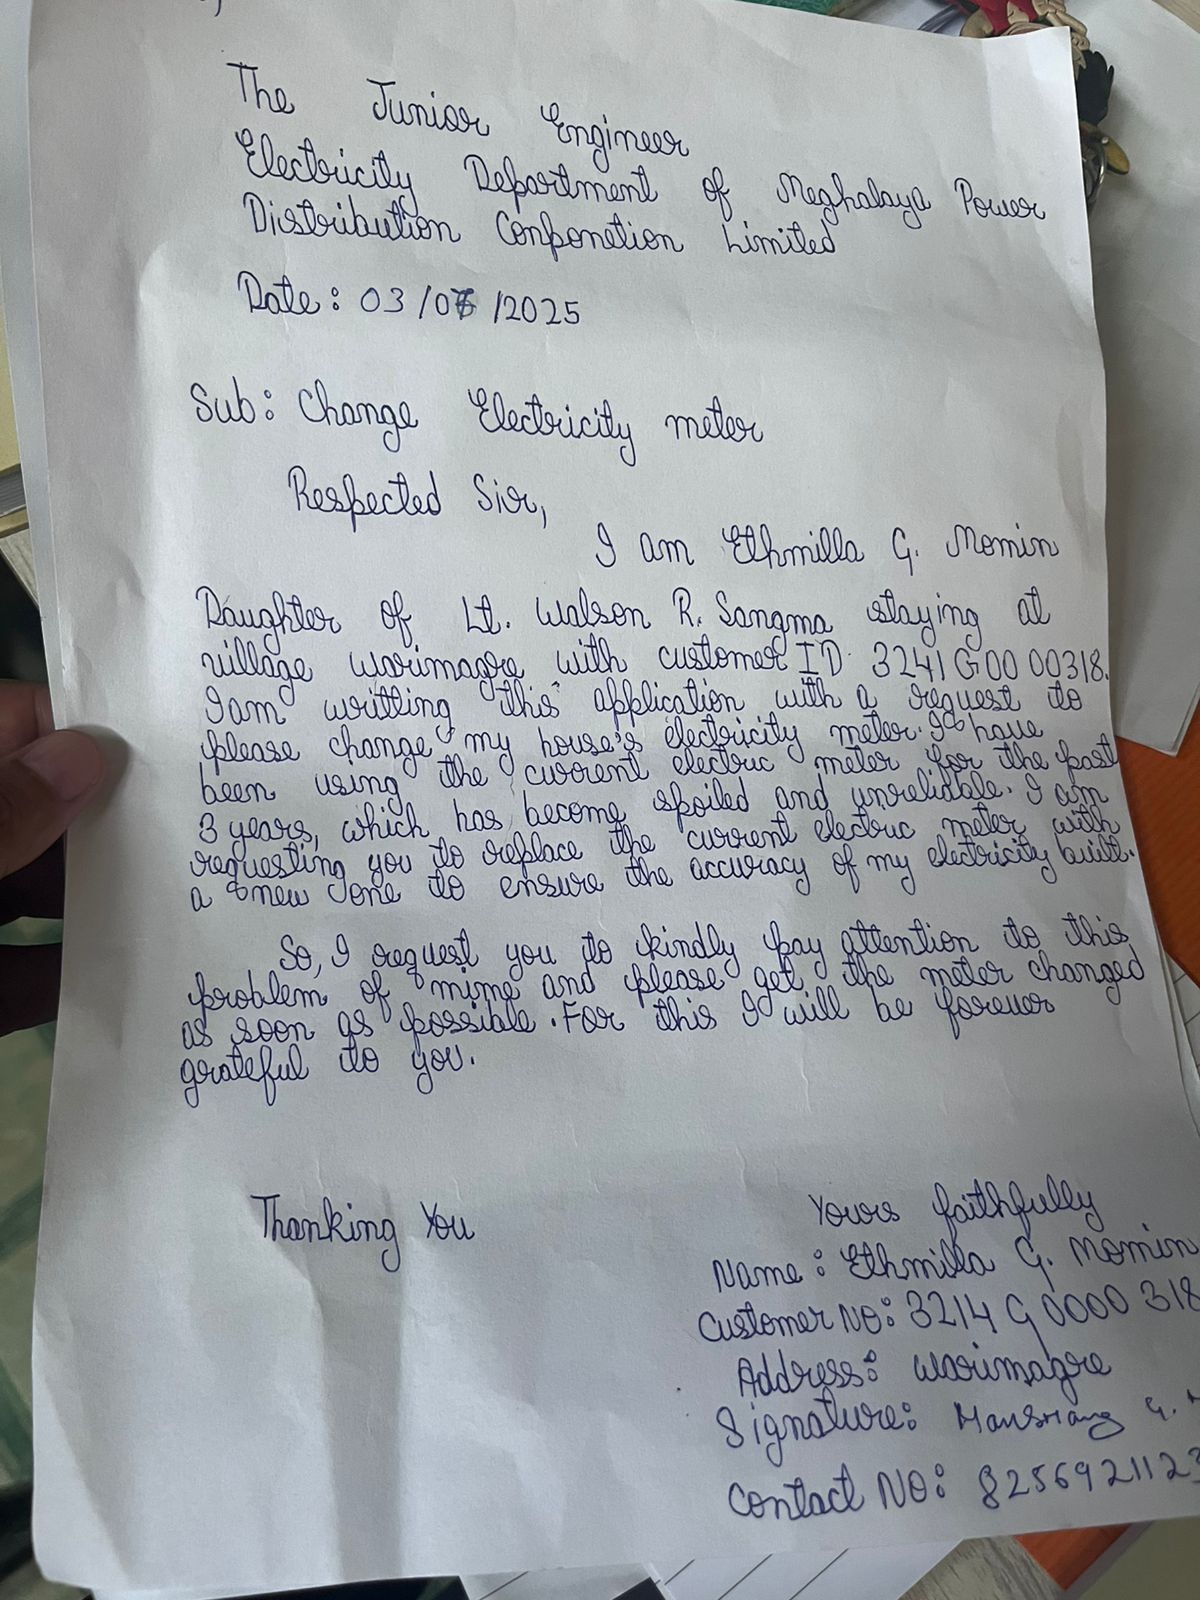 The Junior Engineer
Electricity Department of Meghalaya Power
Distribution Conponetion Limited
Date: 03/0 /2025
Sub: Change Electricity meter
Respected Sir,
I am Ethmilla G. Momin
Daughter of Lt. Walson R. Sangma staying at
village warimagre with customer ID 3241G0000318.
I am writting this application with a request to
please change my house's electricity meter. I have
been using the current electric meter for the past
3 years, which has become spoiled and unreliable. I am
requesting you to replace the current electric meter with
a new one to ensure the accuracy of my electricity built.
So, I request you to kindly pay attention to this
problem of mime and please get the meter changed
as soon as possible. For this I will be forever
grateful to you.
Thanking You
Yours faithfully
Name: Ethmilla G. Momin
Customer NO: 3214G0000318
Address: warimagre
Signature: G.
Contact NO: 8256921123